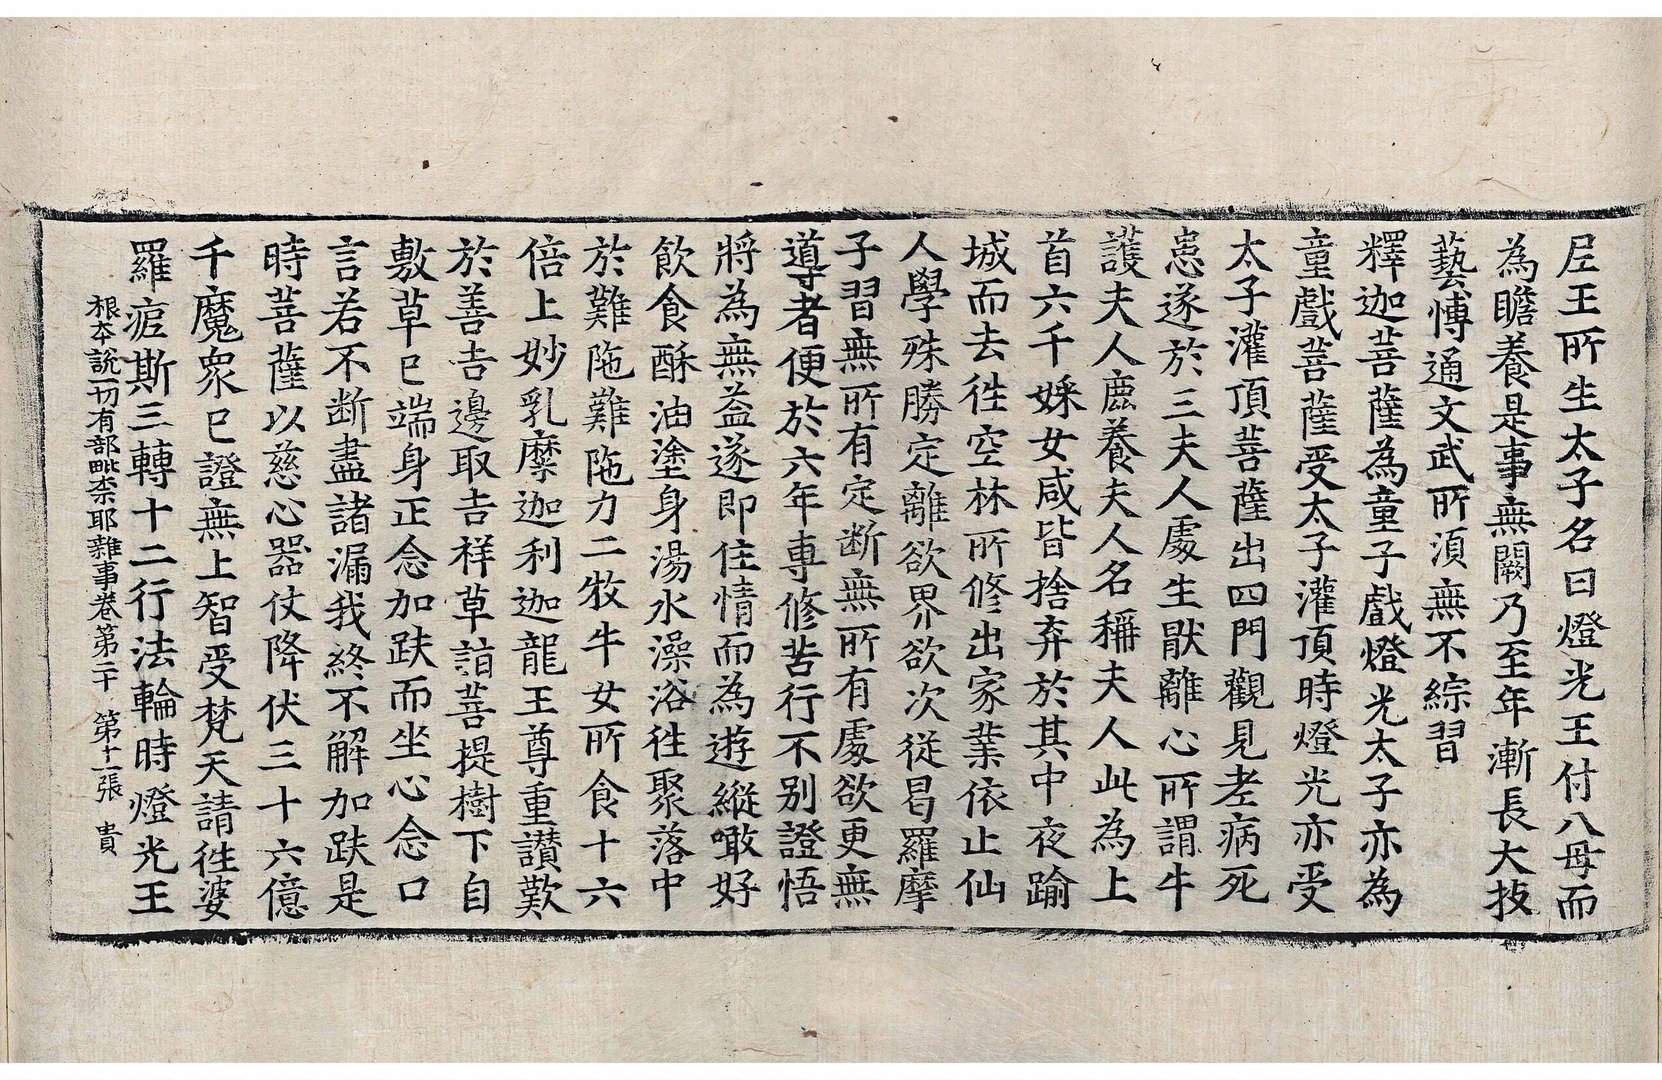 尼王所生太子名曰燈光王付八母而
為瞻養是事無闕乃至年漸長大技
藝愽通文武所湏無不綜習
釋迦菩薩為童子戲燈光太子亦為
童戲菩薩受太子灌頂時燈光亦受
太子灌頂菩薩出四門觀見老病死
患遂於三夫人處生猒離心所謂牛
護夫人鹿養夫人名稱夫人此為上
首六千婇女咸皆捨弃於其中夜踰
城而去往空林所修出家業依止仙
人學殊勝定離欲界欲次從曷羅摩
子習無所有定断無所有處欲更無
導者便於六年專修苦行不別證悟
將為無益遂即住情而為遊縱噉好
飲食酥油塗身湯水澡浴往聚落中
於難陁難陁力二牧牛女所食十六
倍上妙乳摩迦利迦龍王尊重讃歎
於善吉邊取吉祥草詣菩提樹下自
敷草已端身正念加趺而坐心念口
言若不断盡諸漏我終不解加趺是
時菩薩以慈心器仗降伏三十六億
千魔衆已證無上智受梵天請往婆
羅痆斯三轉十二行法輪時燈光王
根本說一切有部毗柰耶雜事卷第二十 第十一張 貴